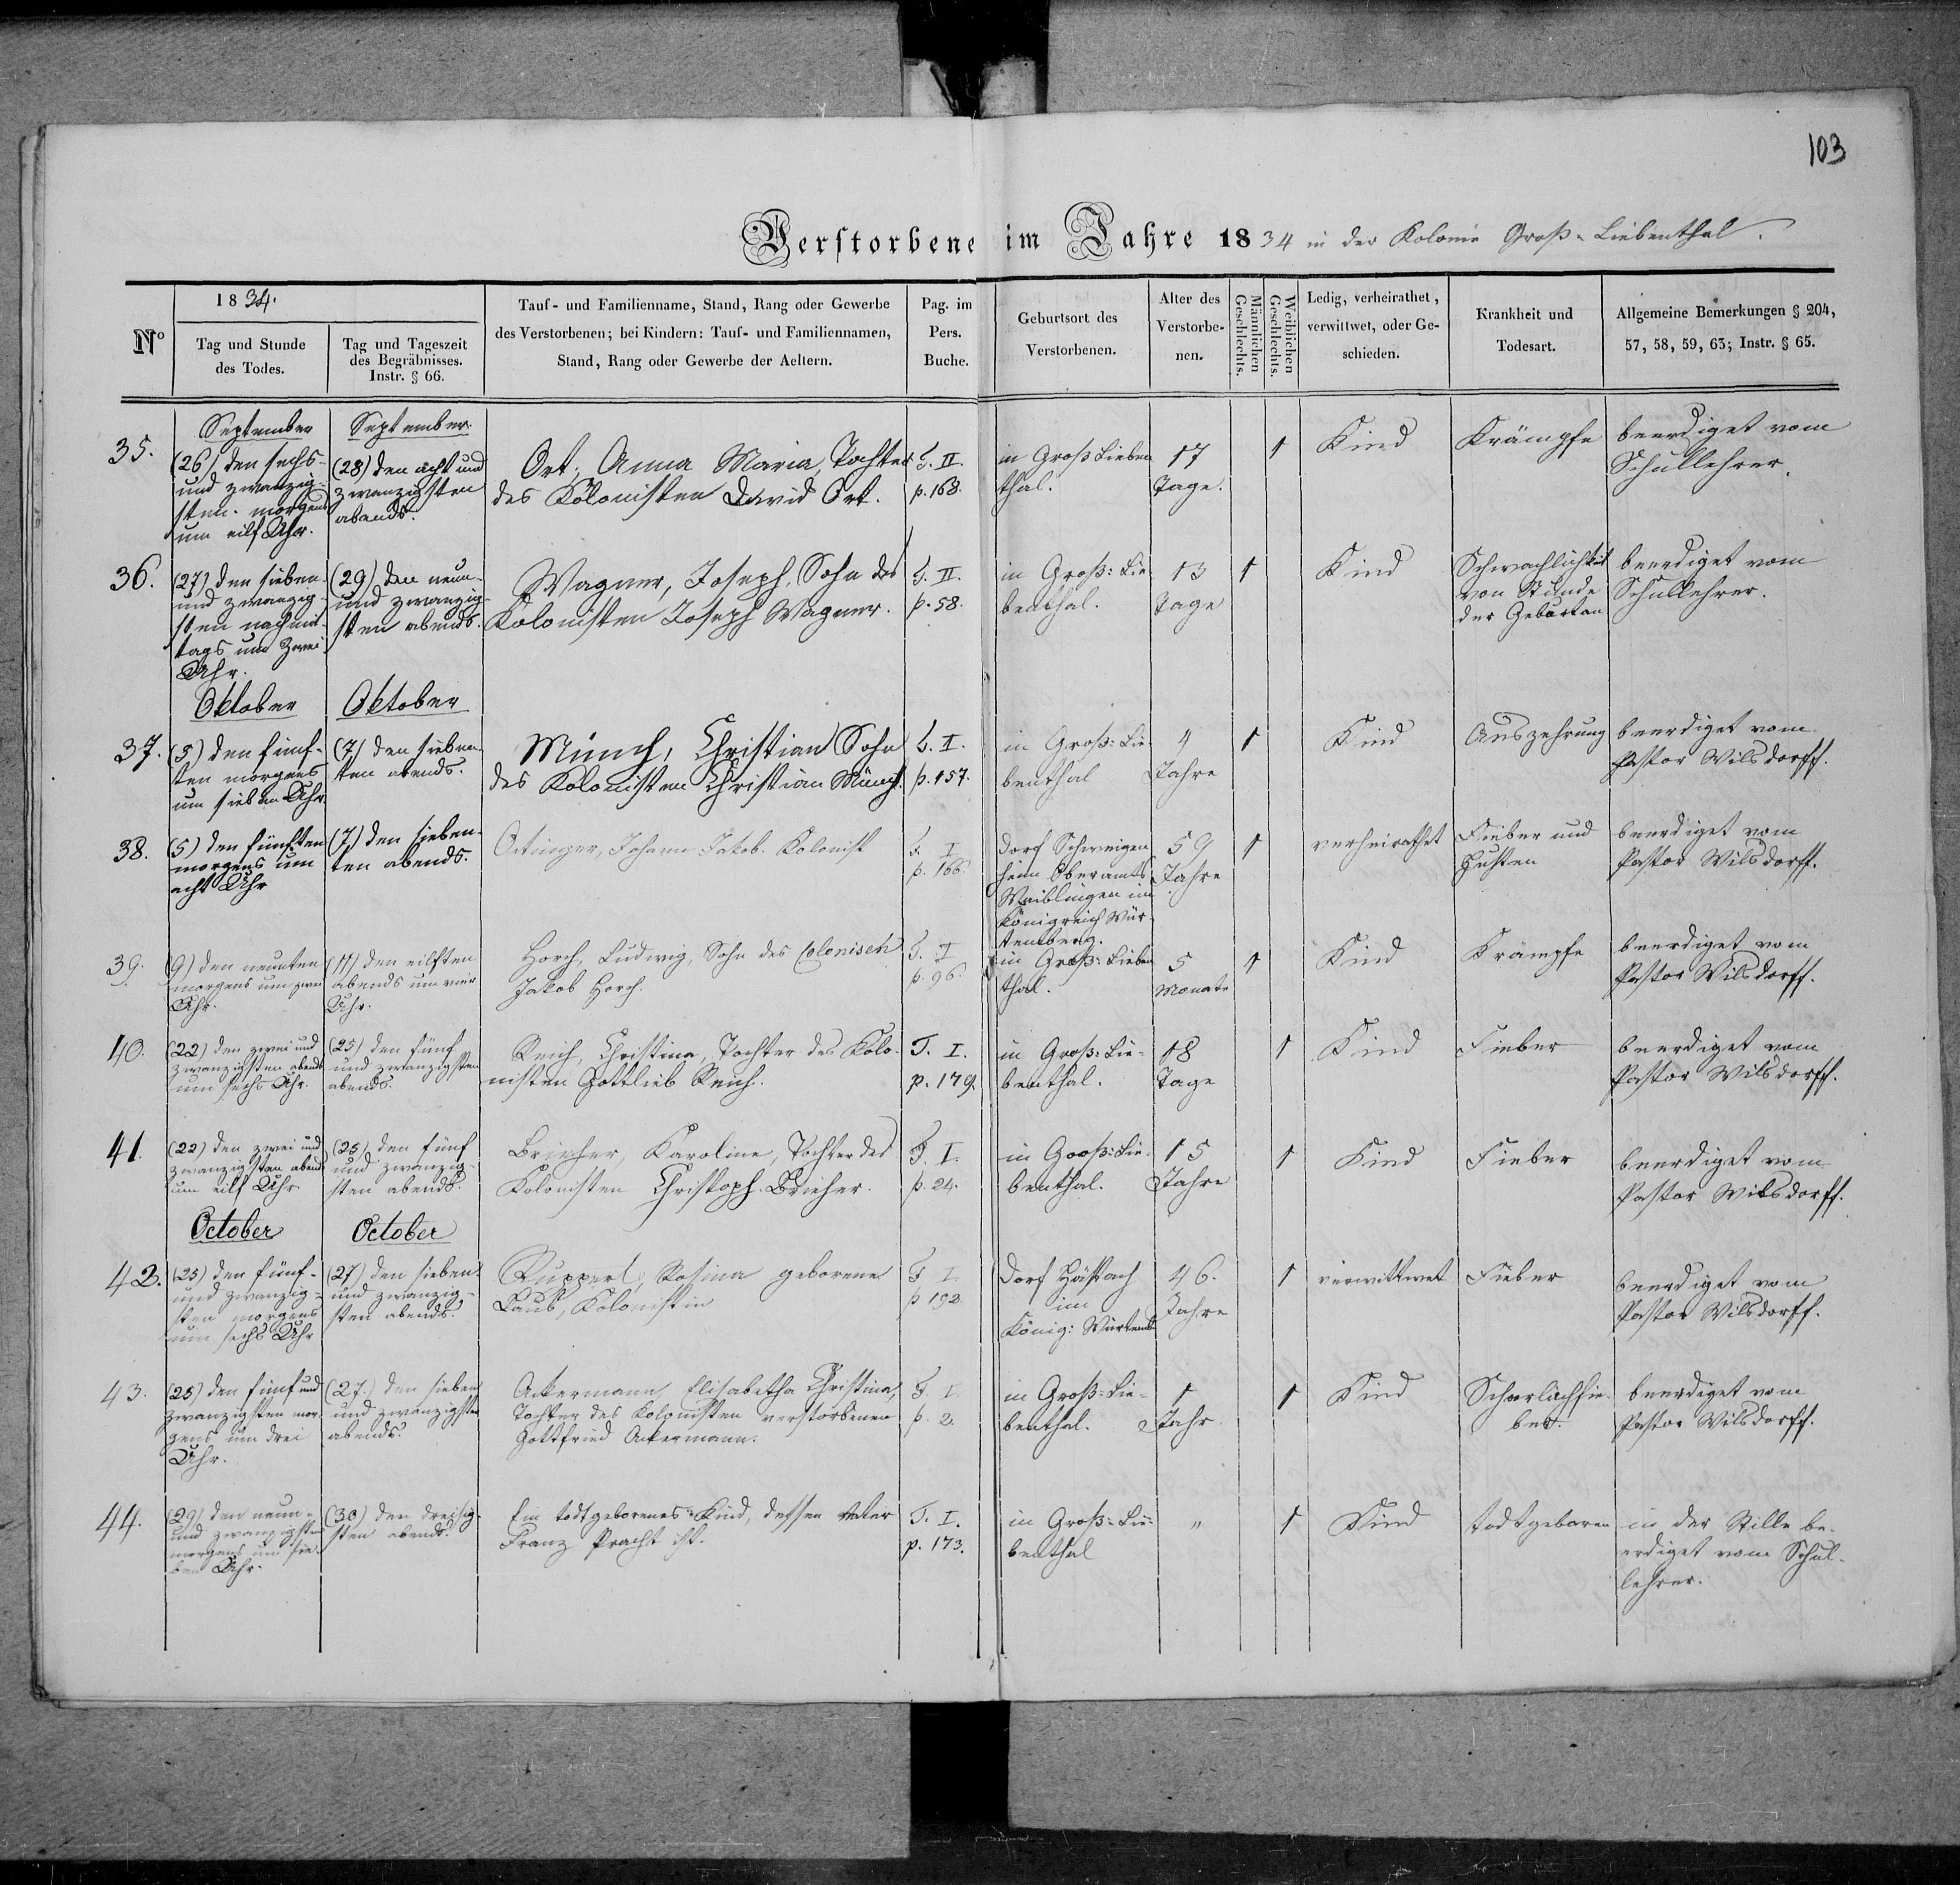 103
Verstorbene im Jahre 1834 in der Kolonie Groß-Liebenthal.
No
1834.
Tag und Stunde
des Todes.
Tag und Tageszeit
des Begräbnisses.
Instr. § 66.
Tauf- und Familienname, Stand, Rang oder Gewerbe
des Verstorbenen; bei Kindern: Tauf- und Familiennamen,
Stand, Rang oder Gewerbe der Aeltern.
Pag. im
Pers.
Buche.
Geburtsort des
Verstorbenen.
Alter des
Verstorbe-
nen.
Männlichen
Geschlechts.
Weiblichen
Geschlechts.
Ledig, verheirathet,
verwittwet, oder Ge-
schieden.
Krankheit und
Todesart.
Allgemeine Bemerkungen § 204,
57, 58, 59, 63; Instr. § 65.
35.
September
(26) den sechs-
und zwanzig-
sten morgens
um eilf Uhr.
September.
(28) den acht und
zwanzigsten
abends.
Ort, Anna Maria, Tochter
des Kolonisten David Ort.
T. II.
p. 168.
in Groß Lieben
thal.
17
Tage.
1
Kind
Krämpfe
beerdiget vom
Schullehrer.
36.
(27) den sieben
und zwanzig-
sten nachmit-
tags um zwei
Uhr.
(29) den neun-
und zwanzig-
sten abends.
Wagner, Joseph, Sohn des
Kolonisten Joseph Wagner.
T. II.
p. 58.
in Groß: Lie-
benthal.
13
Tage
1
Kind
Schwachlichkeit
von Stunde
der Geburt an
beerdiget vom
Schullehrer.
Oktober
Oktober
37.
(5) den fünf-
ten morgens
um sieben Uhr.
(7) den sieben-
ten abends.
Münch, Christian Sohn
des Kolonisten Christian Münch.
T. I.
p. 157.
in Groß: Lie-
benthal
4
Jahre
1
Kind
Auszehrung
beerdiget vom
Pastor Wilsdorff.
38.
(5) den fünften
morgens um
acht Uhr
(7) den sieben-
ten abends.
Oetinger, Johann Jakob. Kolonist
T. I
p. 166.
Dorf Schweigen
heim Oberamts
Waiblingen im
Königreich Wür-
temberg.
59
Jahre
1
verheirathet
Fieber und
Husten
beerdiget vom
Pastor Wilsdorff.
39.
(9) den neunten
morgens um zwei
Uhr.
(11) den eilften
abends um vier
Uhr.
Horch, Ludwig, Sohn des Colonisten
Jakob Horch.
T. I
p. 96.
in Groß: Lieben
thal.
5
Monate
1
Kind
Krämpfe
beerdiget vom
Pastor Wilsdorff.
40.
(22) den zwei und
zwanzigsten abends
um sechs Uhr.
(25) den fünf
und zwanzigsten
abends.
Reich, Christina, Tochter des Kolo-
nisten Gottlieb Reich.
T. I.
p. 179.
in Groß: Lie-
benthal.
18
Tage
1
Kind
Fieber
beerdiget vom
Pastor Wilsdorff.
41.
(22) den zwei und
zwanzigsten abends
um eilf Uhr.
(25) den fünf
und zwanzig-
sten abends.
Bricher, Karoline, Tochter des
Kolonisten Christoph Bricher.
T. I.
p. 24.
in Groß: Lie-
benthal.
15
Jahre
1
Kind
Fieber
beerdiget vom
Pastor Wilsdorff.
October
October
42.
(25) den fünf-
und zwanzig-
sten morgens
um sechs Uhr
(27) den sieben-
und zwanzig-
sten abends.
Ruppert, Rosina geborene
Laub, Kolonistin
T. I.
p 192.
Dorf
im
König: Würtemb
46.
Jahre
1
verwittwet
Fieber
beerdiget vom
Pastor Wilsdorff.
43.
(25) den fünf und
zwanzigsten mor-
gens um drei
Uhr.
(27.) den sieben
und zwanzigsten
abends.
Ackermann, Elisabetha Christina,
Tochter des Kolonisten verstorbenen
Gottfried Ackermann.
T. I.
p. 2.
in Groß: Lie-
benthal.
1
Jahr.
1
Kind
Scharlachfie-
ber.
beerdiget vom
Pastor Wilsdorff.
44.
(29) den neun-
und zwanzigsten
morgens um sie-
ben Uhr.
(30) den dreisig-
sten abends.
Ein todtgeborenes Kind, dessen Vater
Franz Pracht ist.
T. I.
p. 173.
in Groß: Lie-
benthal
"
1
Kind
todtgeboren
in der Stille be-
erdiget vom Schul-
lehrer.